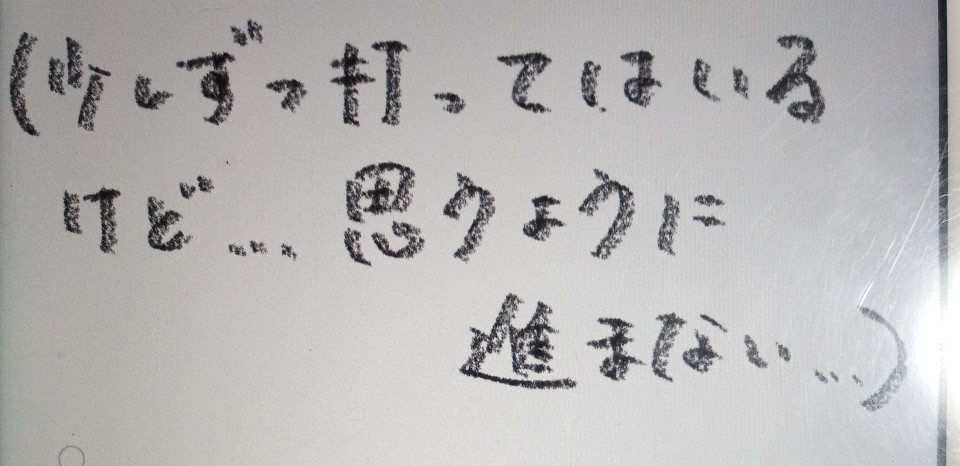 (少しずつ打ってはいる
けど…思うように
進まない…)